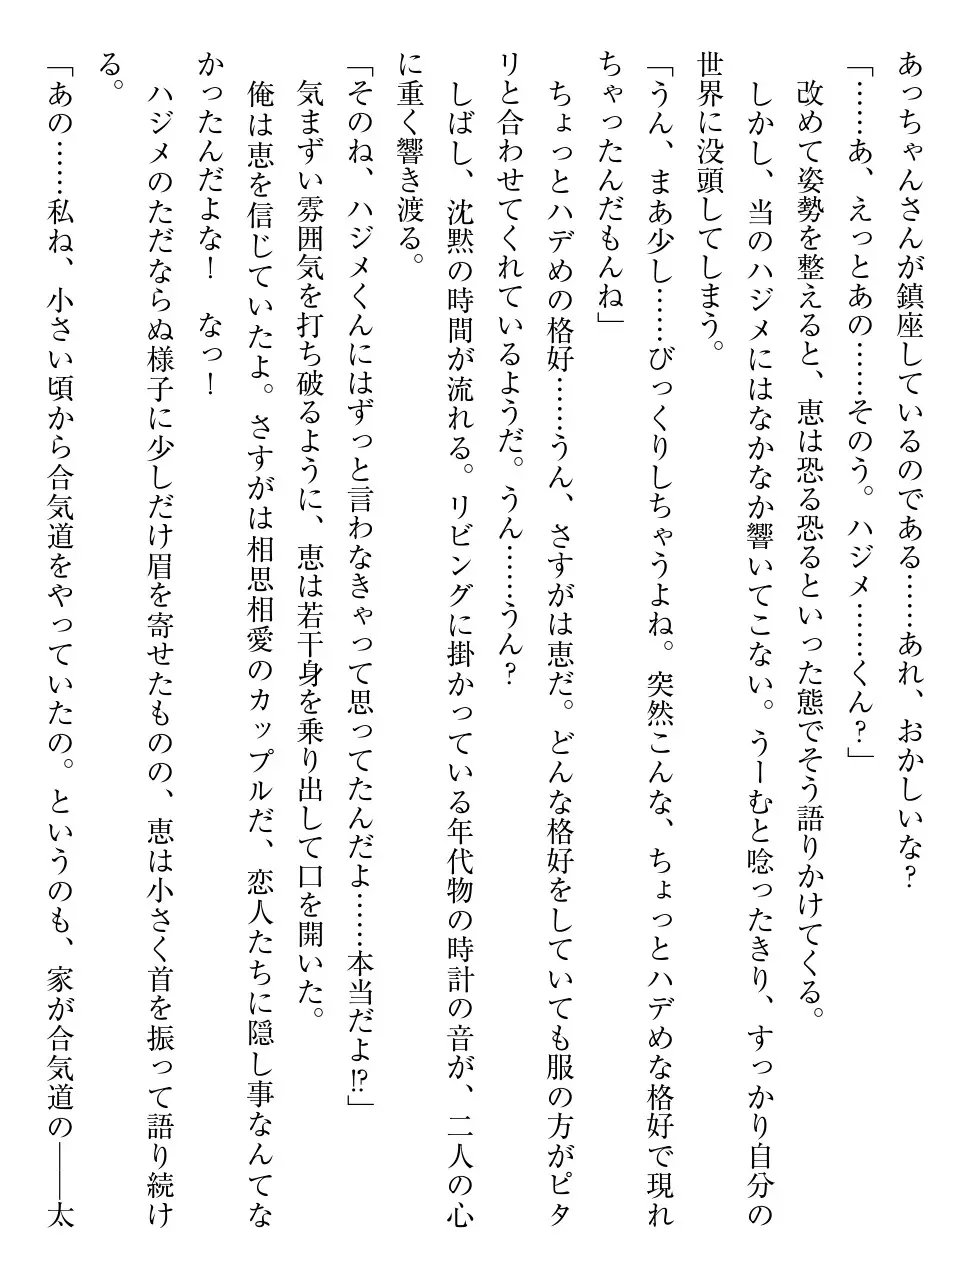 あっちゃんさんが鎮座しているのである……あれ、おかしいな？
「……あ、えっとあの……そのう。ハジメ……くん？」
改めて姿勢を整えると、恵は恐る恐るといった態でそう語りかけてくる。
しかし、当のハジメにはなかなか響いてこない。うーむと唸ったきり、すっかり自分の
世界に没頭してしまう。
「うん、まあ少し……びっくりしちゃうよね。突然こんな、ちょっとハデめな格好で現れ
ちゃったんだもんね」
ちょっとハデめの格好……うん、さすがは恵だ。どんな格好をしていても服の方がピタ
リと合わせてくれているようだ。うん……うん？
しばし、沈黙の時間が流れる。リビングに掛かっている年代物の時計の音が、二人の心
に重く響き渡る。
「そのね、ハジメくんにはずっと言わなきゃって思ってたんだよ……本当だよ⁉」
気まずい雰囲気を打ち破るように、恵は若干身を乗り出して口を開いた。
俺は恵を信じていたよ。さすがは相思相愛のカップルだ、恋人たちに隠し事なんてな
かったんだよな！　なっ！
ハジメのただならぬ様子に少しだけ眉を寄せたものの、恵は小さく首を振って語り続け
る。
「あの……私ね、小さい頃から合気道をやっていたの。というのも、家が合気道の――太